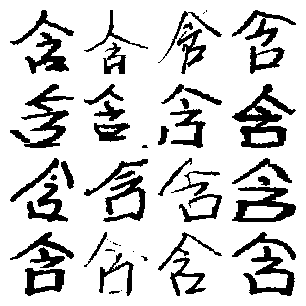 含含含含
含含含含
含含含含
含含含含